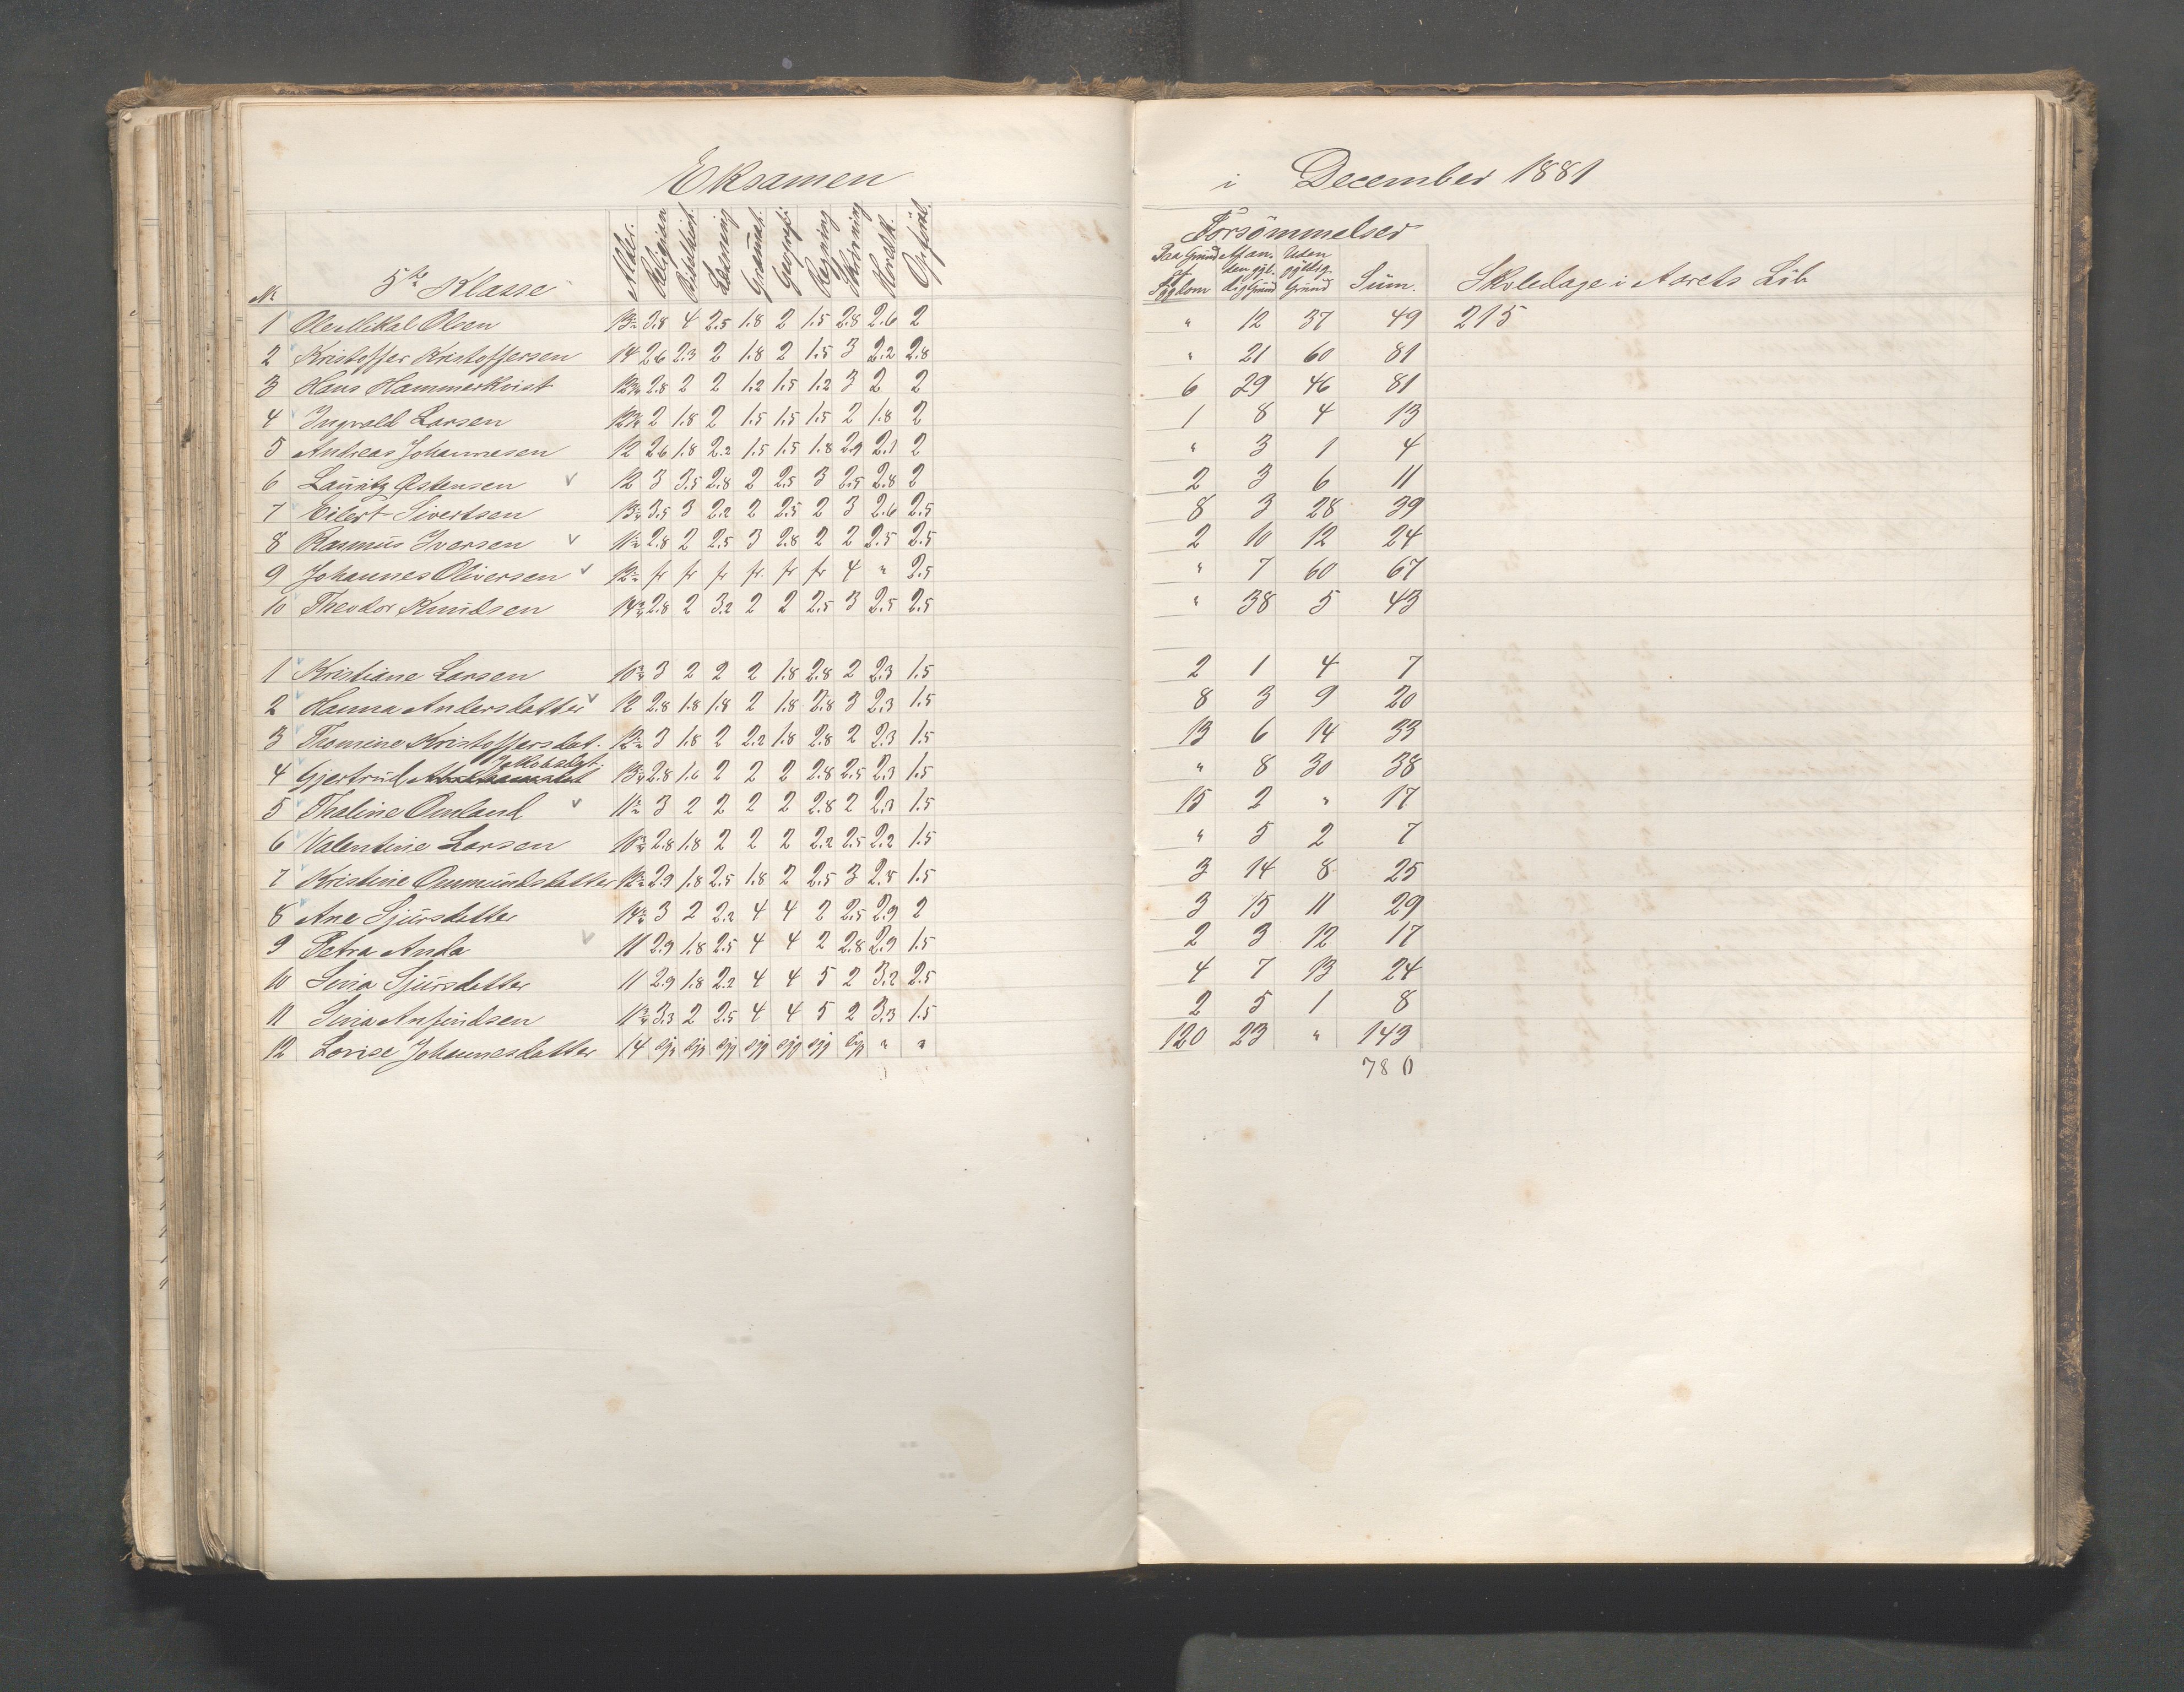 Eksamen i December 1881
Forsömmelser
№ 5te Klasse Alder. Religion Bibelhist. Læsning Gramat. Geografi Regning Skrivning Hovedk. Opförsel. Paa Grund af Sygdom Af anden gyldig Grund Uden gyldig Grund Sum. Skoledage i Aarets Löb
1 Ole Mikal Olsen 3.8 4 2.5 1.8 2 1.5 2.8 2.6 2 " 12 37 49 215
2 Kristoffer Kristoffersen 14 2.6 2.3 2 1.8 2 1.5 3 2.2 2.8 " 21 60 81
3 Hans Hammerkvist 2.8 2 2 1.2 1.5 1.2 3 2 2 6 29 46 81
4 Ingvald Larsen 2 1.8 2 1.5 1.5 1.5 2 1.8 2 1 8 4 13
5 Andreas Johannesen 12 2.6 1.8 2.2 1.5 1.5 1.8 2.9 2.1 2 " 3 1 4
6 Lauritz Østensen v 12 3 3.5 2.8 2 2.5 3 2.5 2.8 2 2 3 6 11
7 Eilert Sivertsen 3.5 3 2.2 2 2.5 2 3 2.6 2.5 8 3 28 39
8 Rasmus Iversen v 2.8 2 2.5 3 2.8 2 2 2.5 2.5 2 10 12 24
9 Johannes Oliversen v fr fr fr fr fr fr 4 " 2.5 " 7 60 67
10 Theodor Knudsen 2.8 2 3.2 2 2 2.5 3 2.5 2.5 " 38 5 43
1 Kristiane Larsen 3 2 2 2 1.8 2.8 2 2.3 1.5 2 1 4 7
2 Hanna Andersdatter v 12 2.8 1.8 1.8 2 1.8 2.8 3 2.3 1.5 8 3 9 20
3 Thomine Kristoffersdat. 3 1.8 2 2.2 1.8 2.8 2 2.3 1.5 13 6 14 33
4 Gjertrud Jakobsdat. 2.8 1.6 2 2 2 2.8 2.5 2.3 1.5 " 8 30 38
5 Thaline Omland v 3 2 2 2 2 2.8 2 2.3 1.5 15 2 " 17
6 Valentine Larsen 2.8 1.8 2 2 2 2.2 2.5 2.2 1.5 " 5 2 7
7 Kristine Ommundsdatter 2.9 1.8 2.5 1.8 2 2.5 3 2.5 1.5 3 14 8 25
8 Ane Sjursdatter 3 2 2.2 4 4 2 2.5 2.9 2 3 15 11 29
9 Petra Anda v 11 2.9 1.8 2.5 4 4 2 2.8 2.9 1.5 2 3 12 17
10 Sivia Sjursdatter 11 2.9 1.8 2.2 4 4 5 2 3.2 2.5 4 7 13 24
11 Sivia Anfindsen 3.3 2 2.5 4 4 5 2 3.3 1.5 2 5 1 8
12 Lovise Johannesdatter 14 syg syg syg syg syg syg syg " " 120 23 " 143
780